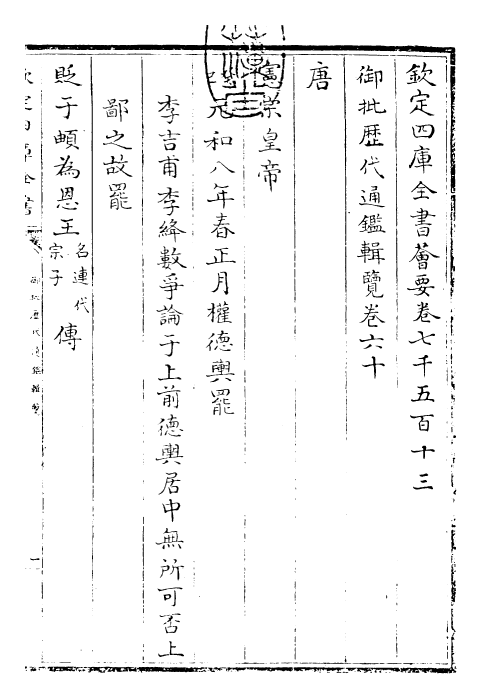 欽定四庫全書薈要卷七千五百十三
御批歴代通鑑輯覽卷六十
唐
憲宗皇帝
元和八年春正月權德輿罷
李吉甫李絳數爭論于上前德輿居中無所可否上
鄙之故罷
貶于頔為恩王名連代宗子傅
欽定四庫全書
御批歴代通鑑輯覽
一